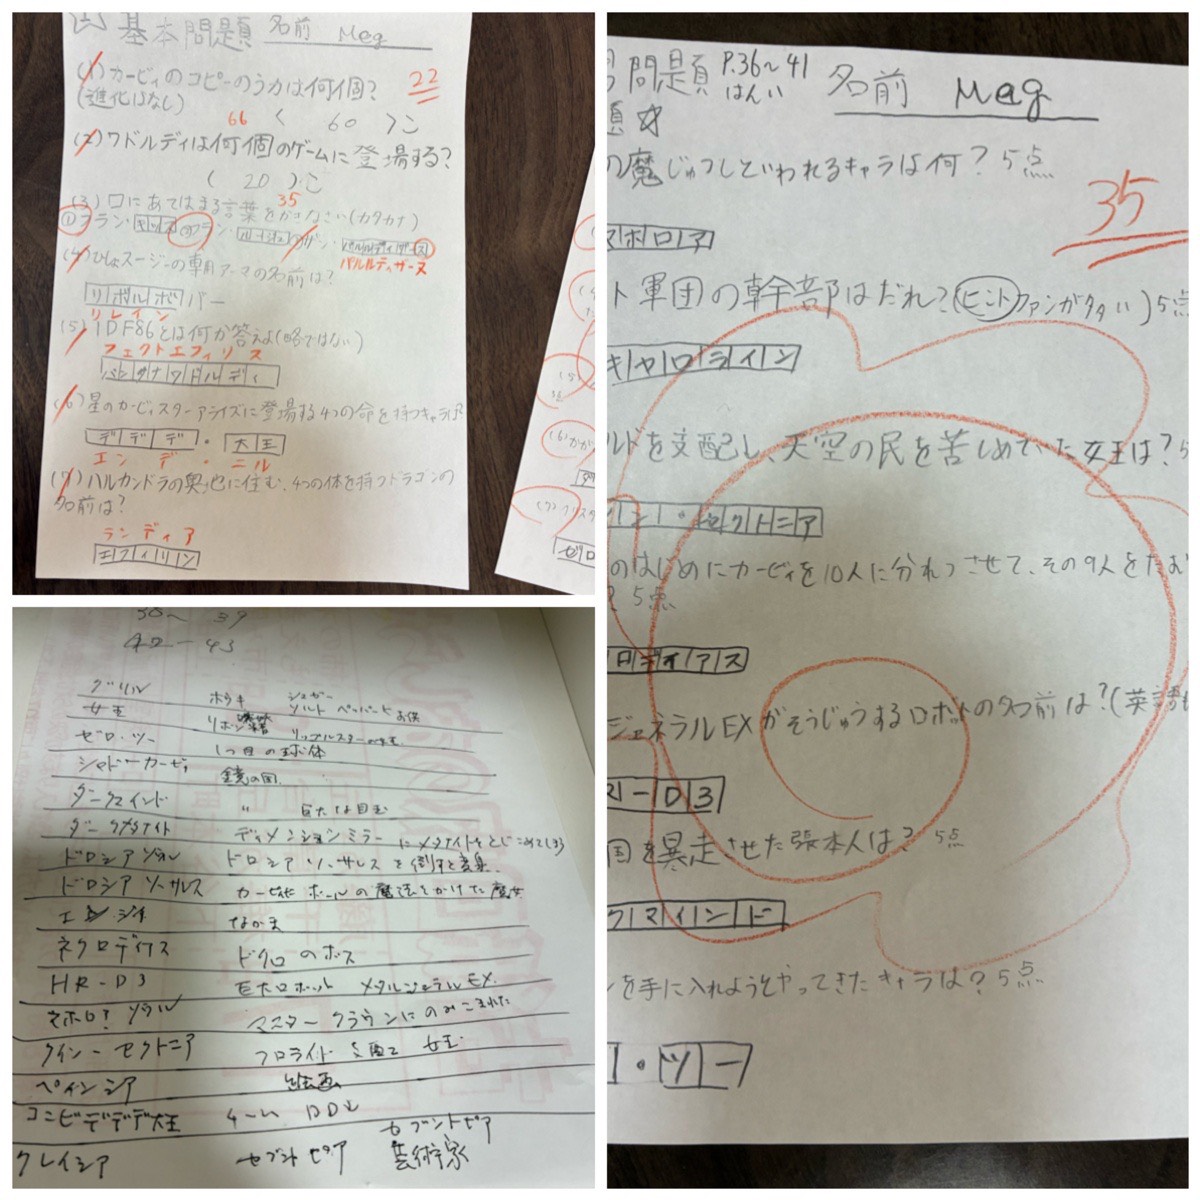 基本問題 名前 Meg
(1)カービィのコピーのうカは何個? 22
(進化はなし)
66 ( 60 )こ
(2)ワドルディは何個のゲームに登場する?
( 20 )こ
35
(3)口にあてはまる言葉をかきなさい(カタカナ)
①フラン・キッス ②フラン・ルージュ ③ザン・パルルディザーズ
パルルティザーヌ
(4)ひしょスージーの専用アーマの名前は?
リボルボバー
リレイン
(5)IDF86とは何か答えよ(略ではない)
フェクトエフィリス
バンダナワドルディ
(6)星のカービィスターアライズに登場する4つの命を持つキャラは?
デデデ・大王
エンデ・ニル
(7)ハルカンドラの奥地に住む、4つの体を持つドラゴンの
名前は?
ランディア
エフィリン
問題 P.36〜41 名前 Meg
はんい
題☆
の魔じゅつしといわれるキャラは何? 5点
35
マホロア
ト軍団の幹部はだれ?(ヒントファンガタタい)5点
キャロライン
ルドを支配し、天空の民を苦しめていた女王は?5
イン・セクトニア
のはじめにカービィを10人に分れつさせて、その9人をたお
? 5点
ロディアス
ジェネラルEXがそうじゅうするロボットの名前は?(英語
R-D3
国を暴走させた張本人は? 5点
クマインド
ンを手に入れようとやってきたキャラは? 5点
・ツー
30〜 39
42-43
グリル ホウキ シュガー
女王 リボン ソルト ペッパー
リップルスターの女王
ゼロ・ツー 1つ目の球体
シャドーカービィ 鏡の国
ダークマインド 〃 巨大な目玉
ダークメタナイト ディメンションミラーにメタナイトをとじこめてしまう
ドロシアソウル ドロシアソーサレスを倒すと変身
ドロシアソーサレス カービィにボールの魔法をかけた魔女
エンジィ なかま
ネクロディアス ドクロのボス
HR-D3 巨大ロボット メタルジェネラルEX
マホロアソウル マスタークラウンにのみこまれた
クイン-セクトニア フロラルド支配 女王
ペインシア 絵画
コンビデデデ大王
クレイシア セブントピア 芸術家
セブントピア